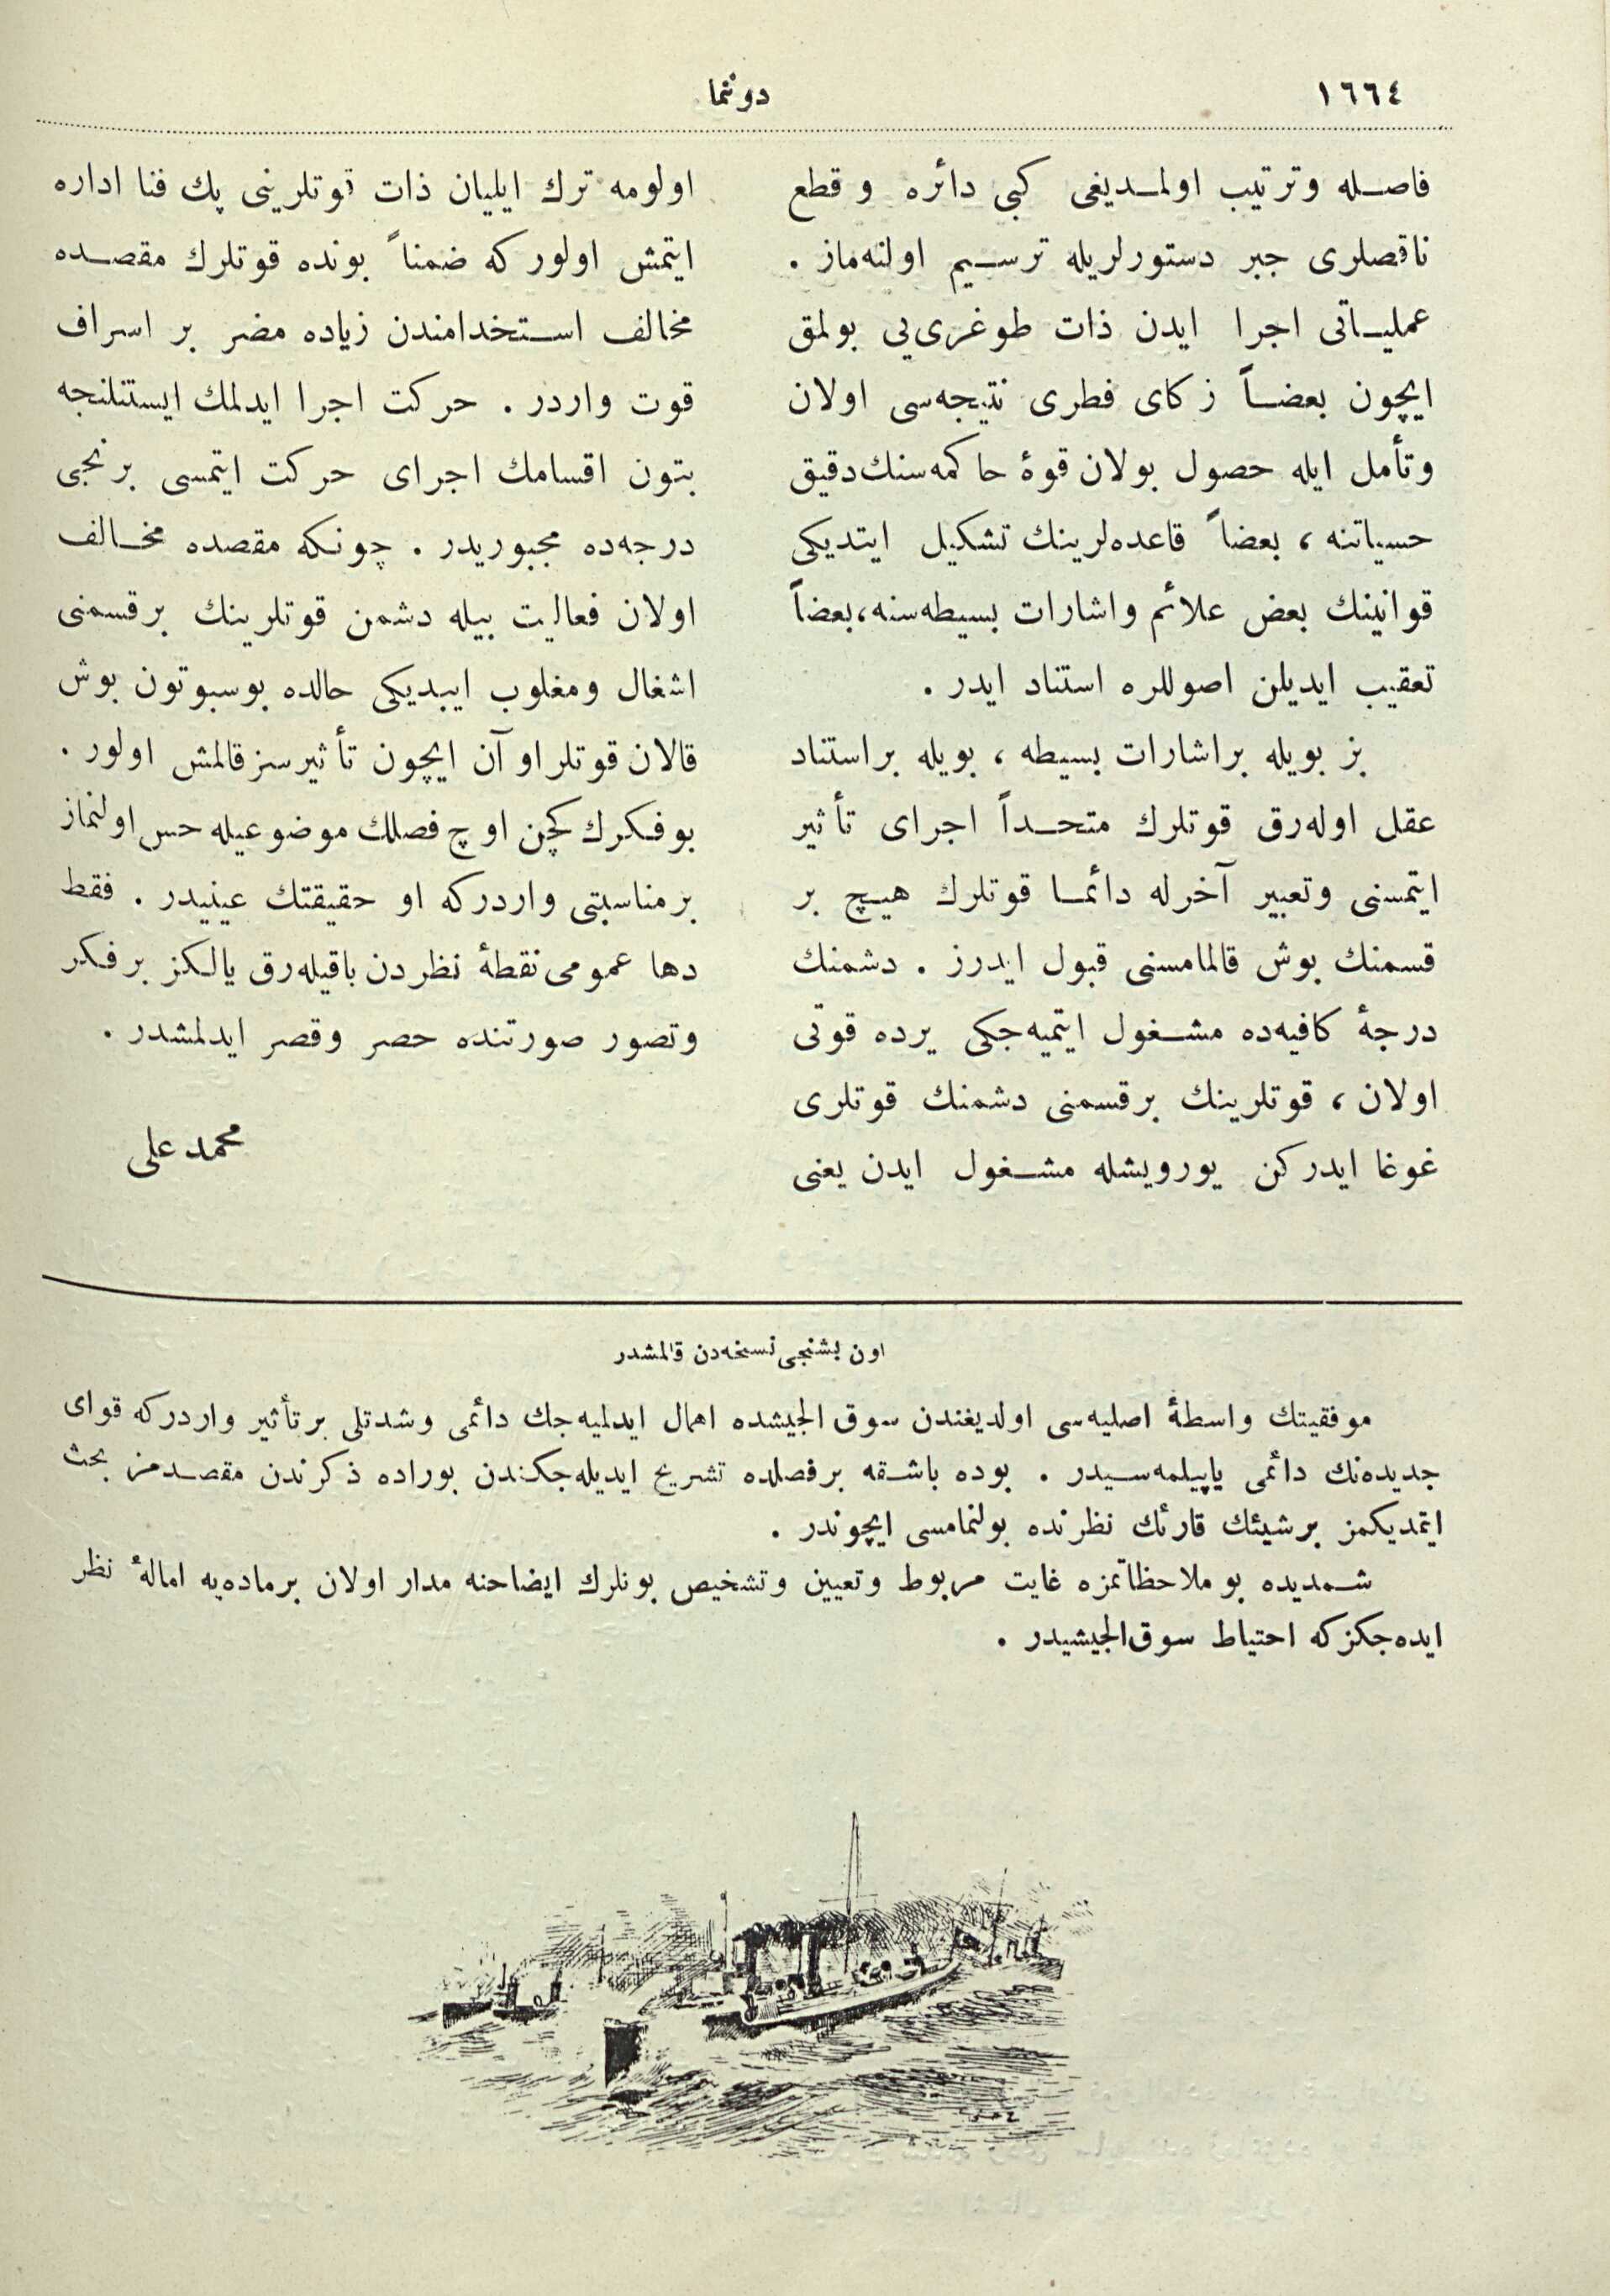 ١٦٦٤
دونما
فاصله وترتيب اولمديغى كبى دائره و قطع
ناقصلرى جبر دستورلريله ترسيم اولنه‌ماز .
عملياتى اجرا ايدن ذات طوغرى‌يى بولمق
ايچون بعضاً زكاى فطرى نتيجه‌سى اولان
وتأمل ايله حصول بولان قوهٔ حاكمه‌سنك دقيق
حسياتنه ، بعضاً قاعده‌لرينك تشكيل ايتديكى
قوانينك بعض علائم واشارات بسيطه‌سنه ، بعضاً
تعقيب ايديلن اصوللره استناد ايدر .
بز بويله براشارات بسيطه ، بويله براستناد
عقل اوله‌رق قوتلرك متحداً اجراى تأثير
ايتمسنى وتعبير آخرله دائما قوتلرك هيچ بر
قسمنك بوش قالمامسنى قبول ايدرز . دشمنك
درجهٔ كافيه‌ده مشغول ايتميه‌جكى يرده قوتى
اولان ، قوتلرينك برقسمنى دشمنك قوتلرى
غوغا ايدركن يورويشله مشغول ايدن يعنى
اولومه ترك ايليان ذات قوتلرينى پك فنا اداره
ايتمش اولور كه ضمناً بونده قوتلرك مقصده
مخالف استخدامندن زياده مضر بر اسراف
قوت واردر . حركت اجرا ايدلمك ايستنلنجه
بتون اقسامك اجراى حركت ايتمسى برنجى
درجه‌ده مجبوريدر . چونكه مقصده مخالف
اولان فعاليت بيله دشمن قوتلرينك برقسمنى
اشغال ومغلوب ايبديكى حالده بوسبوتون بوش
قالان قوتلر او آن ايچون تأثيرسز قالمش اولور .
بوفكرك كچن اوچ فصللك موضوعيله حس اولنماز
برمناسبتى واردركه او حقيقتك عينيدر . فقط
دها عمومى نقطهٔ نظردن باقيله‌رق يالكز برفكر
وتصور صورتنده حصر وقصر ايدلمشدر .
محمد على
اون بشنجى نسخه‌دن قالمشدر
موفقيتك واسطهٔ اصليه‌سى اولديغندن سوق الجيشده اهمال ايدلميه‌جك دائمى وشدتلى برتأثير واردركه قواى
جديده‌نك دائمى ياپيلمه‌سيدر . بوده باشقه برفصلده تشريح ايديله‌جكندن بوراده ذكرندن مقصدمز بحث
ايتمديكمز برشيئك قارئك نظرنده بولنمامسى ايچوندر .
شمديده بو ملاحظاتمزه غايت مربوط وتعيين وتشخيص بونلرك ايضاحنه مدار اولان برماده‌يه امالهٔ نظر
ايده‌جكزكه احتياط سوق‌الجيشيدر .